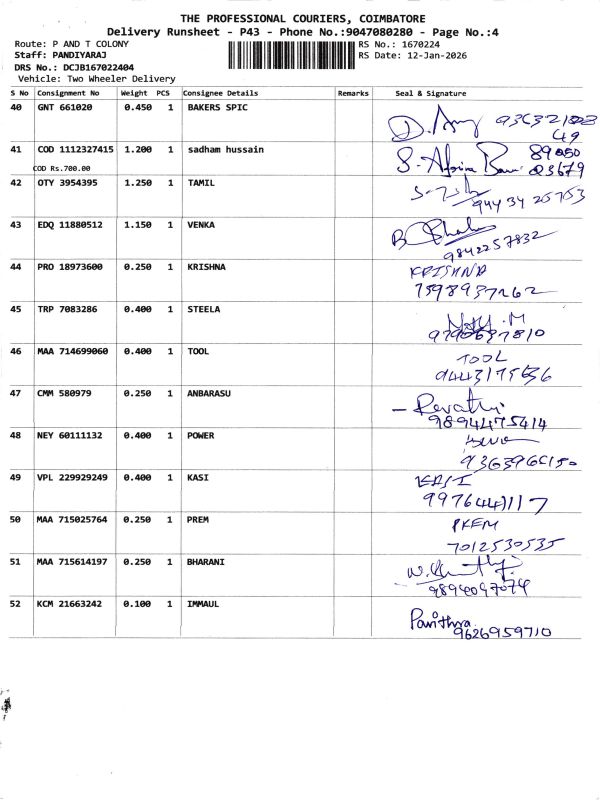 THE PROFESSIONAL COURIERS, COIMBATORE
Delivery Runsheet - P43 - Phone No.:9047080280 - Page No.:4
Route: P AND T COLONY RS No.: 1670224
Staff: PANDIYARAJ RS Date: 12-Jan-2026
DRS No.: DCJB167022404
Vehicle: Two Wheeler Delivery
S No Consignment No Weight PCS Consignee Details Remarks Seal & Signature
40 GNT 661020 0.450 1 BAKERS SPIC
41 COD 1112327415 1.200 1 sadham hussain 89050
COD Rs.700.00 03679
42 OTY 3954395 1.250 1 TAMIL
94434 25753
43 EDQ 11880512 1.150 1 VENKA
9842257832
44 PRO 18973600 0.250 1 KRISHNA KRISHNA
7598937262
45 TRP 7083286 0.400 1 STEELA
46 MAA 714699060 0.400 1 TOOL TOOL
9443175636
47 CMM 580979 0.250 1 ANBARASU Revathi
9894475414
48 NEY 60111132 0.400 1 POWER
49 VPL 229929249 0.400 1 KASI KASI
50 MAA 715025764 0.250 1 PREM PREM
7012530535
51 MAA 715614197 0.250 1 BHARANI
9894097074
52 KCM 21663242 0.100 1 IMMAUL Pavithra
9626959710